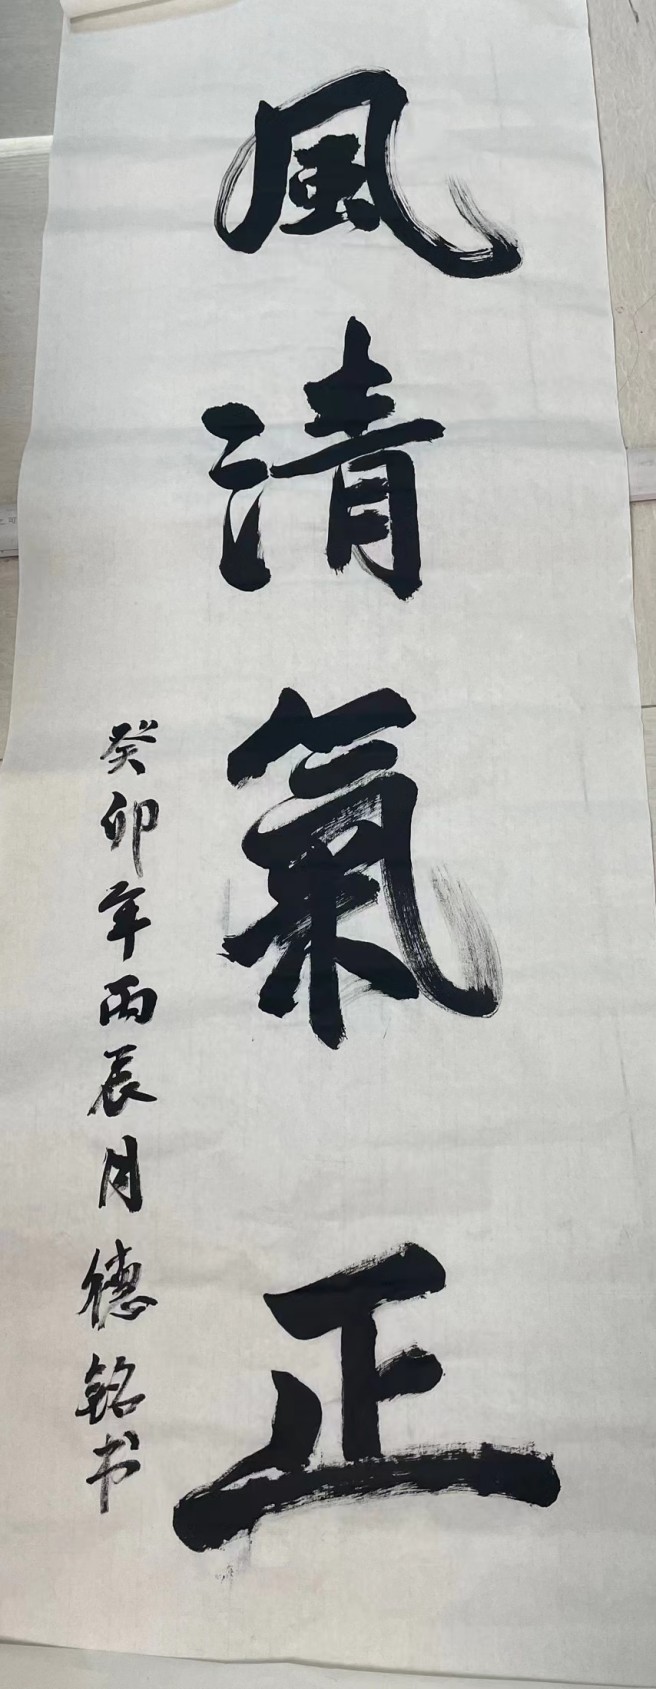 風清氣正
癸卯年丙辰月德銘书